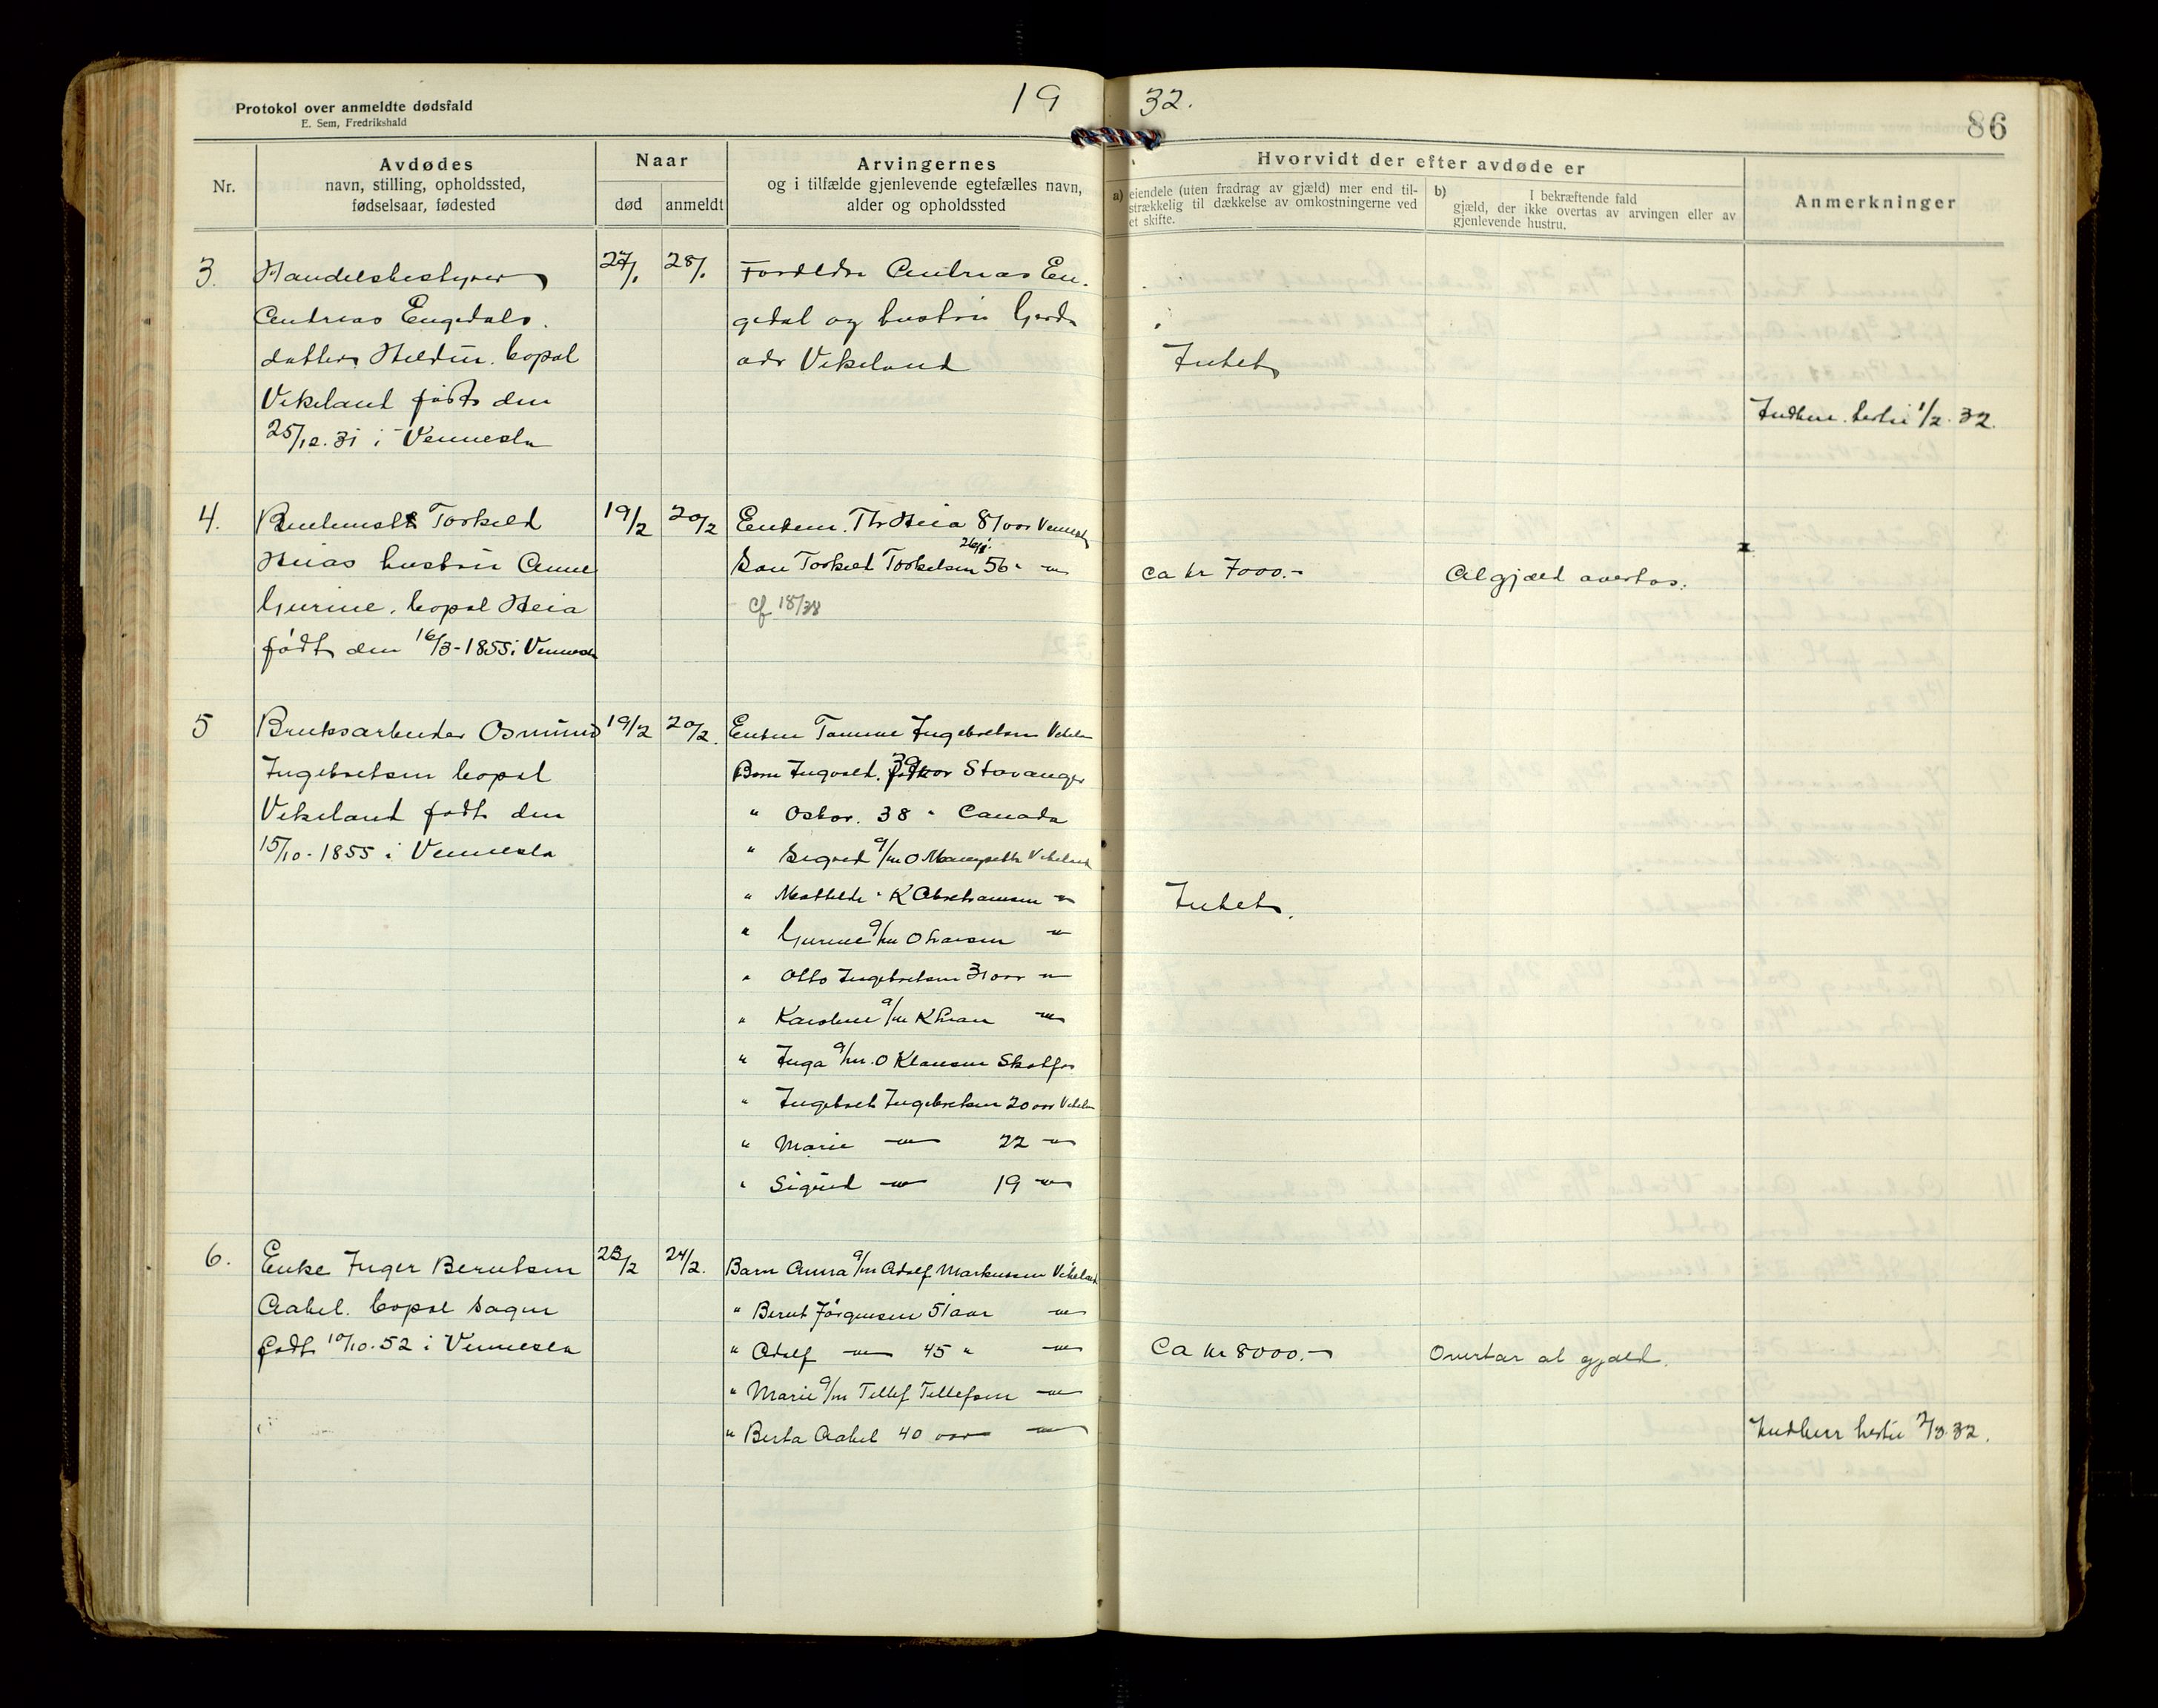 Protokol over anmeldte dødsfald
E. Sem, Fredrikshald
19 32.
86
Nr.
Avdødes
navn, stilling, opholdssted,
fødselsaar, fødested
Naar
død
anmeldt
Arvingernes
og i tilfælde gjenlevende egtefælles navn,
alder og opholdssted
Hvorvidt der efter avdøde er
a) eiendele (uten fradrag av gjæld) mer end til-
strækkelig til dækkelse av omkostningerne ved
et skifte.
b) I bekræftende fald
gjæld, der ikke overtas av arvingen eller av
gjenlevende hustru.
Anmerkninger
3.
Handelsbestyrer
Andreas Engedals
datter, Hildur. bopæl
Vikeland født den
25/12.31 i Vennesla
27/1
28/1
Foreldre Andreas En-
gedal og hustru Gerda
adr Vikeland
Intet
Indber. 1/2.32.
4.
Torkild
Heias hustru Anne
Gurine, bopæl Heia
født den 16/3-1855 i Vennesla
19/2
20/2
Enkem. Heia 81 aar Vennesla
Søn Torkild Torkelsen 56 "
26/8
cf 18/38
ca kr 7000.-
Al gjæld overtas.
x
5
Bruksarbeider Osmund
Ingebretsen bopæl
Vikeland født den
15/10-1855 i Vennesla
19/2
20/2.
Enke Tomine Ingebretsen Vikeland
Barn Ingvald. 39 aar Stavanger
" Oskar. 38 " Canada
" Sigrid g/m O Vikeland
" Mathilde " K Abrahamsen "
" Gurine g/m O Larsen "
" Otto Ingebretsen 31 aar "
" Karoline g/m K "
" Inga g/m. O Klausen
" Ingebret Ingebretsen 20 aar Vikeland
" Marie " 22 "
" Sigurd " 19 "
Intet.
6.
Enke Inger Berntsen
Aabel. bopæl Sagen
født 10/10.52 i Vennesla
23/2
24/2.
Barn Anna g/m Adolf Markussen Vikeland
" Bernt Jörgensen 51 aar "
" Adolf " 45 " "
" Marie g/m Tellef Tellefsen "
" Berta Aabel 40 aar "
Ca kr 8000.-
Overtar al gjæld.
Indber 2/3.32.